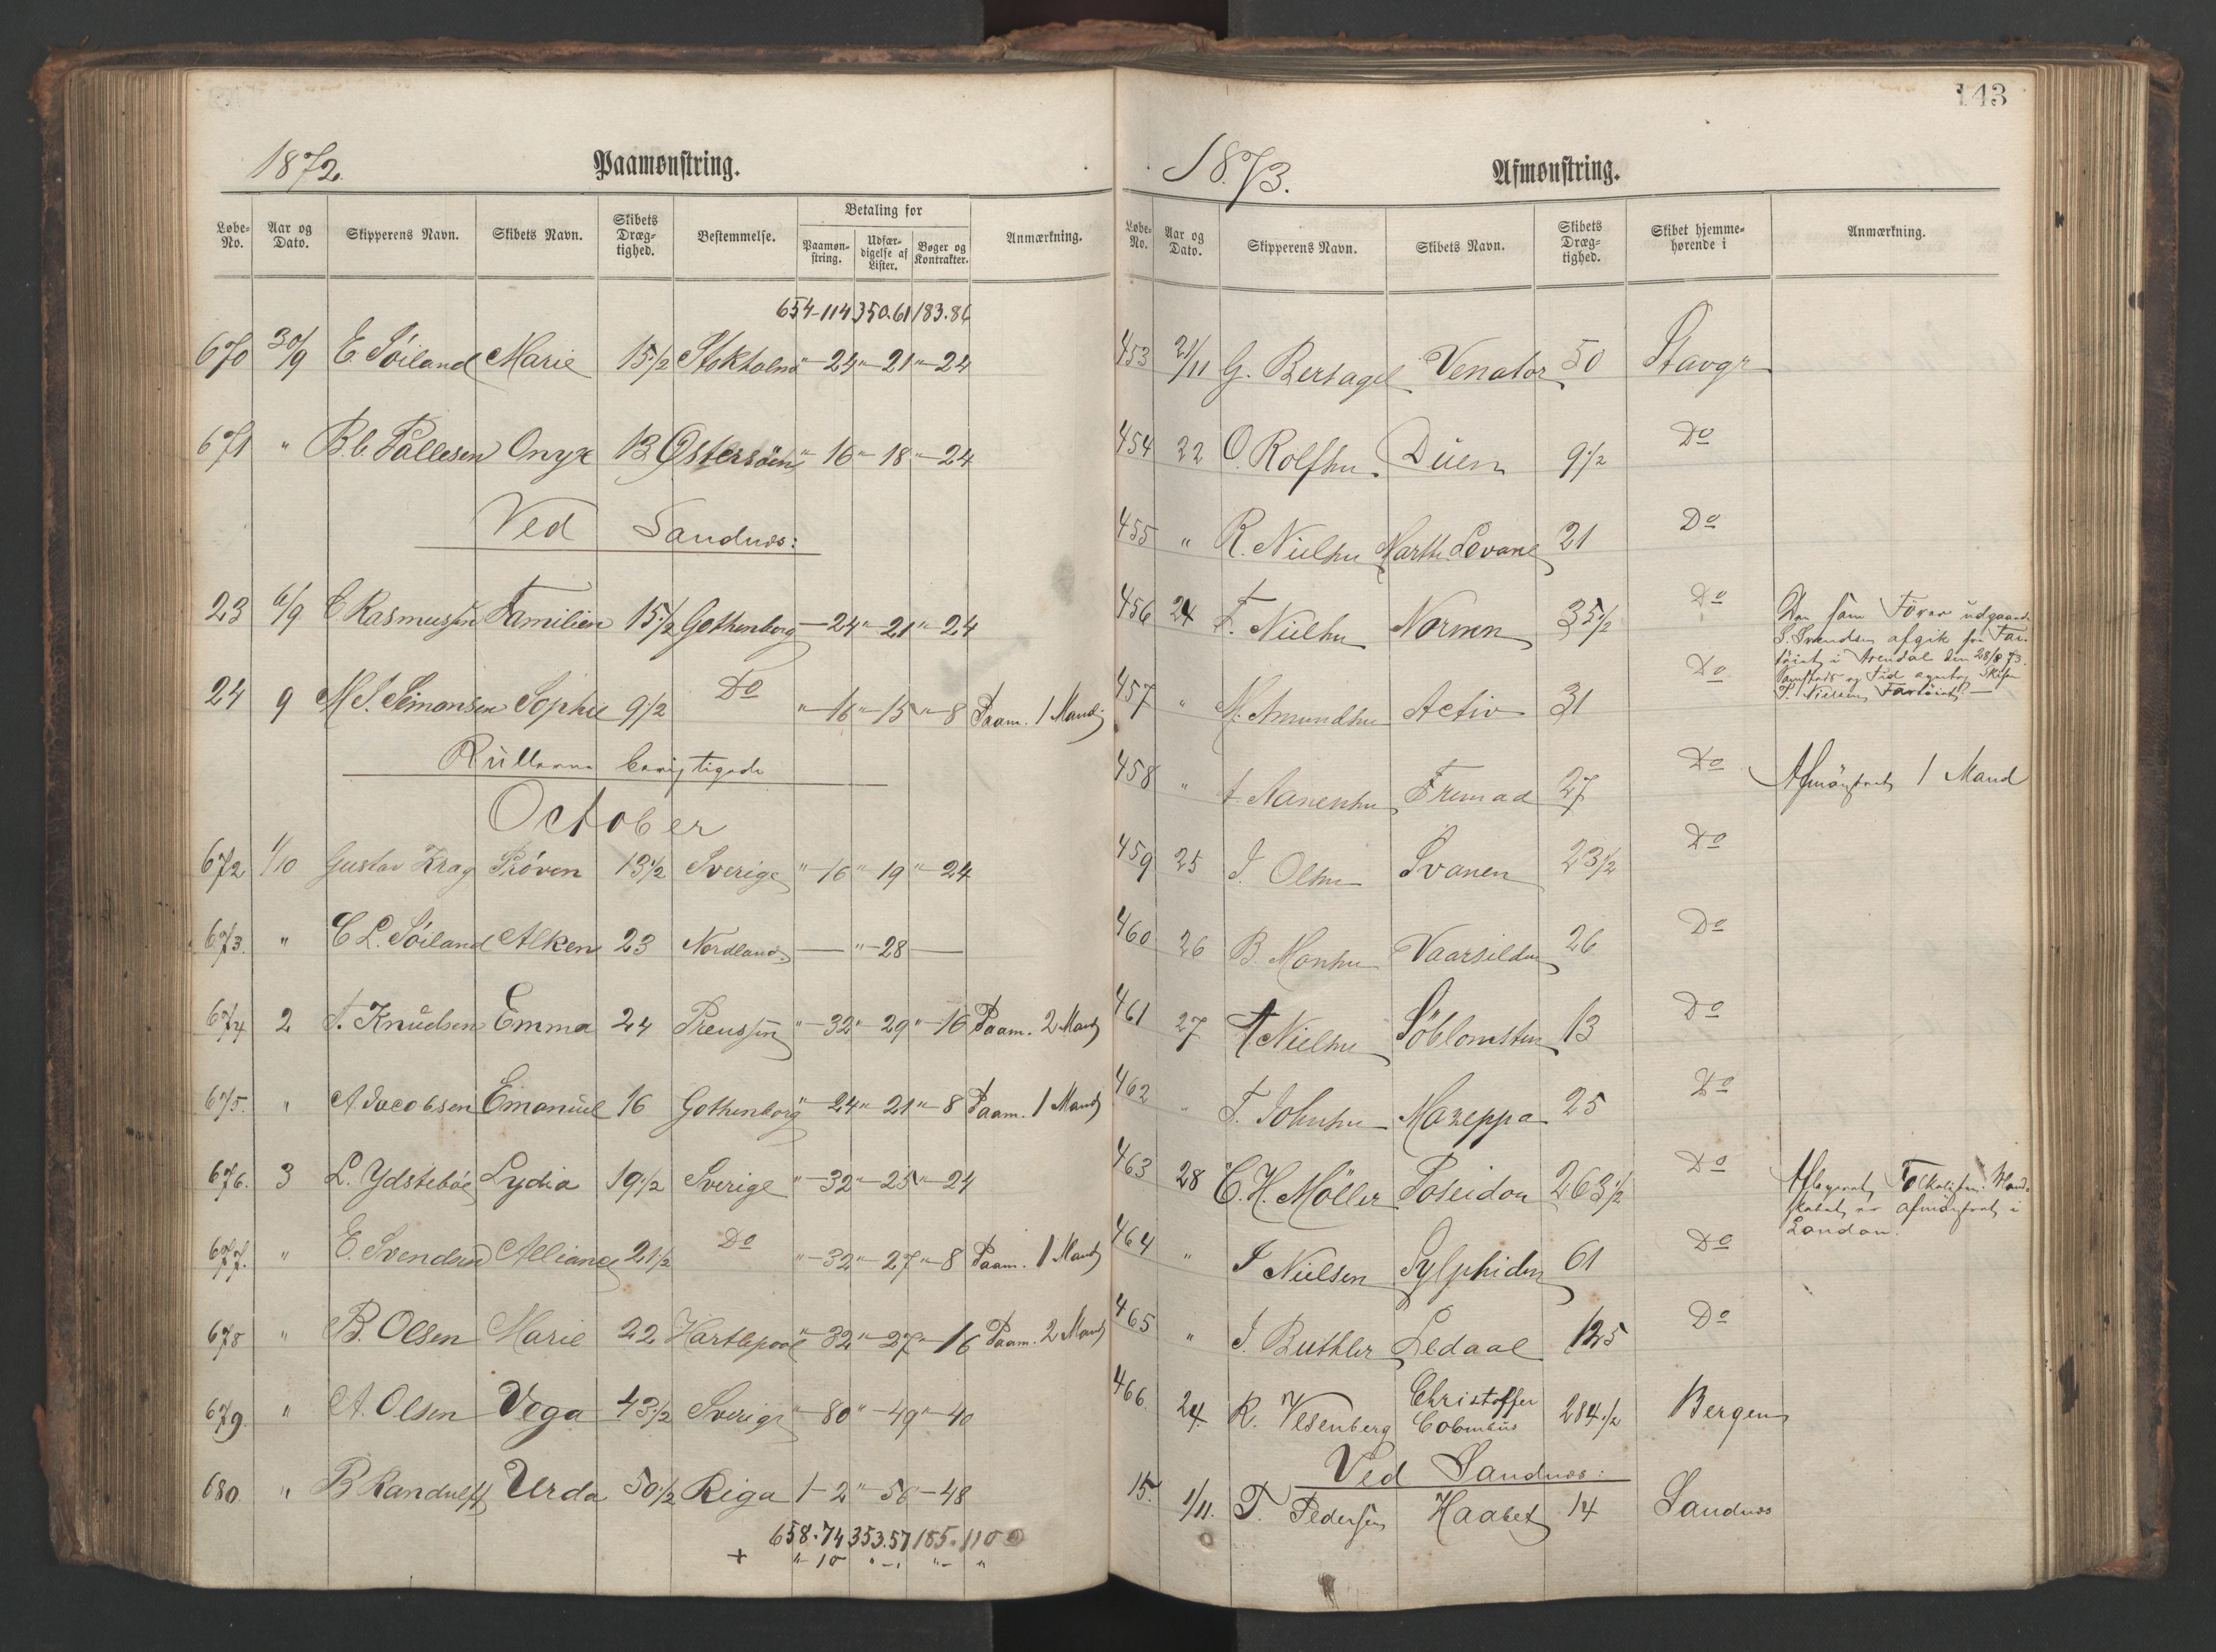 1872.
Paamønstring.
Løbe-No. Aar og Dato. Skipperens Navn. Skibets Navn. Skibets Dræg-tighed. Bestemmelse. Betaling for Paamøn-string. Udfær-digelse af Lister. Bøger og Kontrakter. Anmærkning.
654-114 350.61 183.86
670 30/9 E. Söiland Marie 15 1/2 Stokholm " - 24 " - 21 " - 24
671 " B. C. Pallesen Onyx 13 Østersöen " - 16 " - 18 " - 24
Ved Sandnæs:
23 6/9 C Rasmussen Familien 15 1/2 Gothenborg - 24 " - 21 " - 24
24 9 M. S. Simonsen Sophie 9 1/2 Do " - 16 " - 15 " - 8 Paam. 1 Mand
Rullerne berigtigede
October
672 1/10 Gustav Krag Pröven 13 1/2 Sverige " - 16 " 19 " - 24
673. " C L. Söiland Alken 23 Nordland — " - 28 —
674 2 T. Knudsen Emma 24 Preussen " - 32 " - 29 " - 16 Paam. 2 Mand
675. " A Jacobsen Emanuel 16 Gothenborg " - 24 " - 21 " - 8 Paam. 1 Mand
676. 3 L. Ydsteböe Lydia 19 1/2 Sverige " - 32 " - 25 " - 24
677. " E. Svendsen Alliance 21 1/2 Do " - 32 " - 27 " - 8 Paam. 1 Mand
678 " B. Olsen Marie 22 Hartlepool " - 32 " - 27 " - 16 Paam. 2 Mand
679. " A. Olsen Vega 43 1/2 Sverige " - 80 " - 49 " - 40
680. " B Randulff Urda 50 1/2 Riga 1 - 2 " - 56 - 48
658.74 353.57 185.110
+ " - 10 " - " " - "
143
1873.
Afmønstring.
Løbe-No. Aar og Dato. Skipperens Navn. Skibets Navn. Skibets Dræg-tighed. Skibet hjemme-hørende i Anmærkning.
453 21/11 G. Bersagel Venator 50 Stavgr
454 22 O. Rolfsen Duen 9 1/2 Do
455 " R. Nielsen Marthe Lovane 21 Do
456 24 T. Nielsen Normen 35 1/2 Do Den som Förer udgaaende
S. Svendsen afgik fra Far-
töiet i Arendal den 28/8 73.
Samsteds og Tid Skipr
T. Nielsen Fartöiet. —
457 " M. Amundsen Activ 31 Do
458 " Nanensen Fremad 27 Do Afmönstret 1 Mand
459 25 J. Olsen Svanen 23 1/2 Do
460 26 B. Monsen Vaarsilden 26 Do
461 27 T Nielsen Söblomsten 13 Do
462 " T. Johnsen Mazeppa 25 Do
463 28 C. H. Möller Poseidon 263 1/2 Do Afleveret Folkelisten. Mand-
skabet er afmönstret i
London.
464 " J Nielsen Sylphiden 61 Do
465 " J. Buthler Ledaal 125 Do
466. 24. R. Vesenberg Christoffer Colombus 284 1/2 Bergen
Ved Sandnæs:
15. 1/11. T. Pedersen Haabet 14 Sandnæs